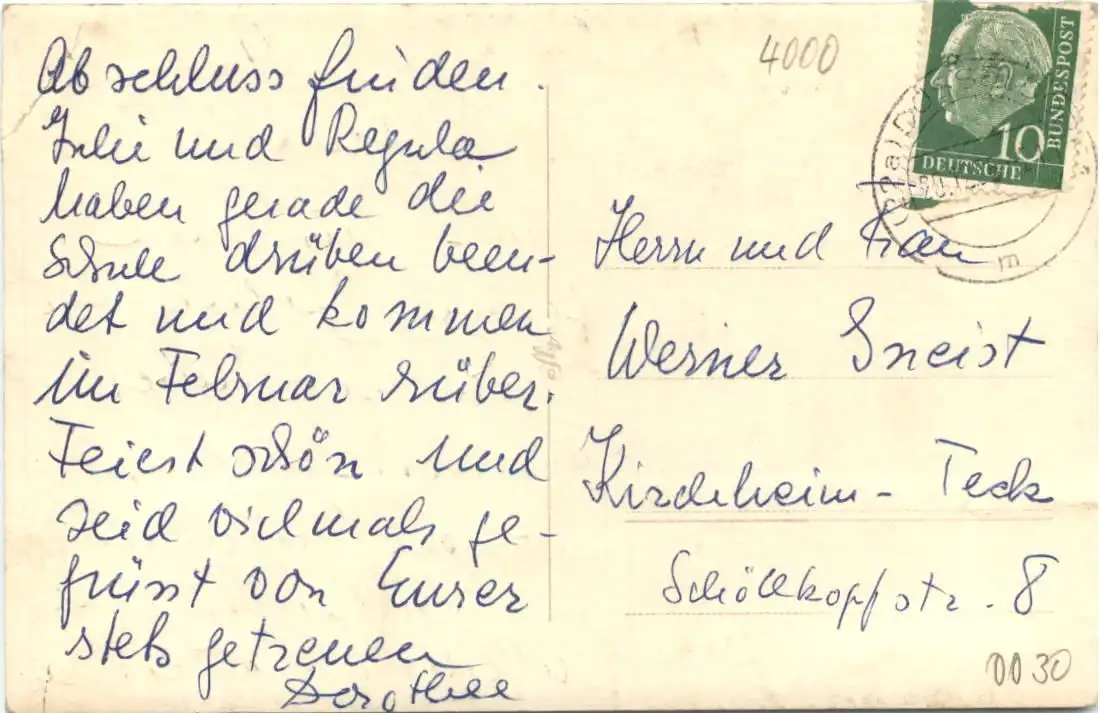 Abschluss finden.
Julie und Regula
haben gerade die
Schule drüben been-
det und kommen
im Februar rüber.
Feiert schön und
seid vielmals ge-
grüsst von Eurer
stets getreuen
Dorothee
4000
10
DEUTSCHE
BUNDESPOST
Herrn und Frau
Werner Gneist
Kirchheim-Teck
Schöllkopfstr. 8
Agfa
0030